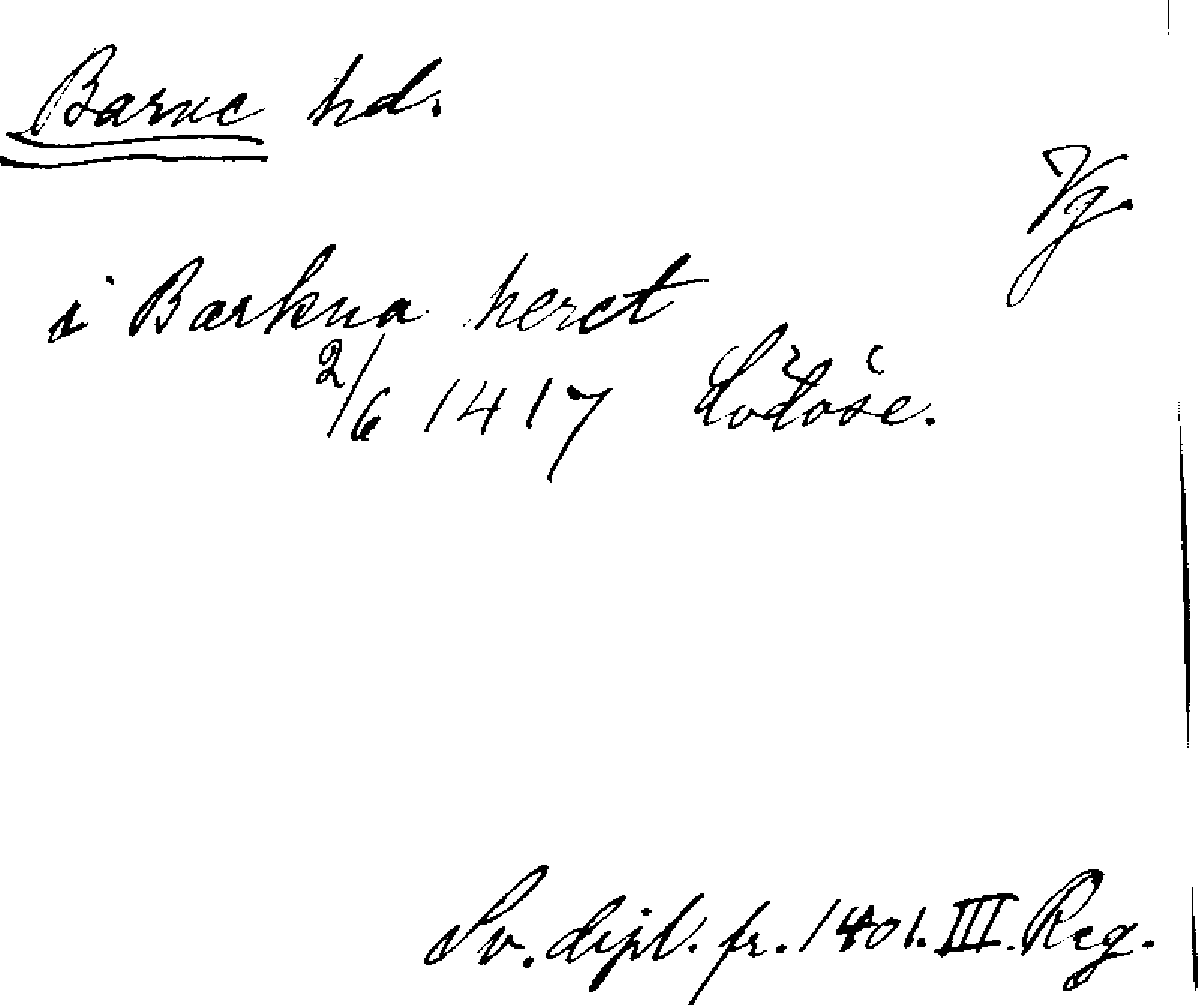 Barne hd.
Vg.
i Barkna heret
2/6 1417 Lödöse.
Sv. dipl. fr. 1401. III. Reg.